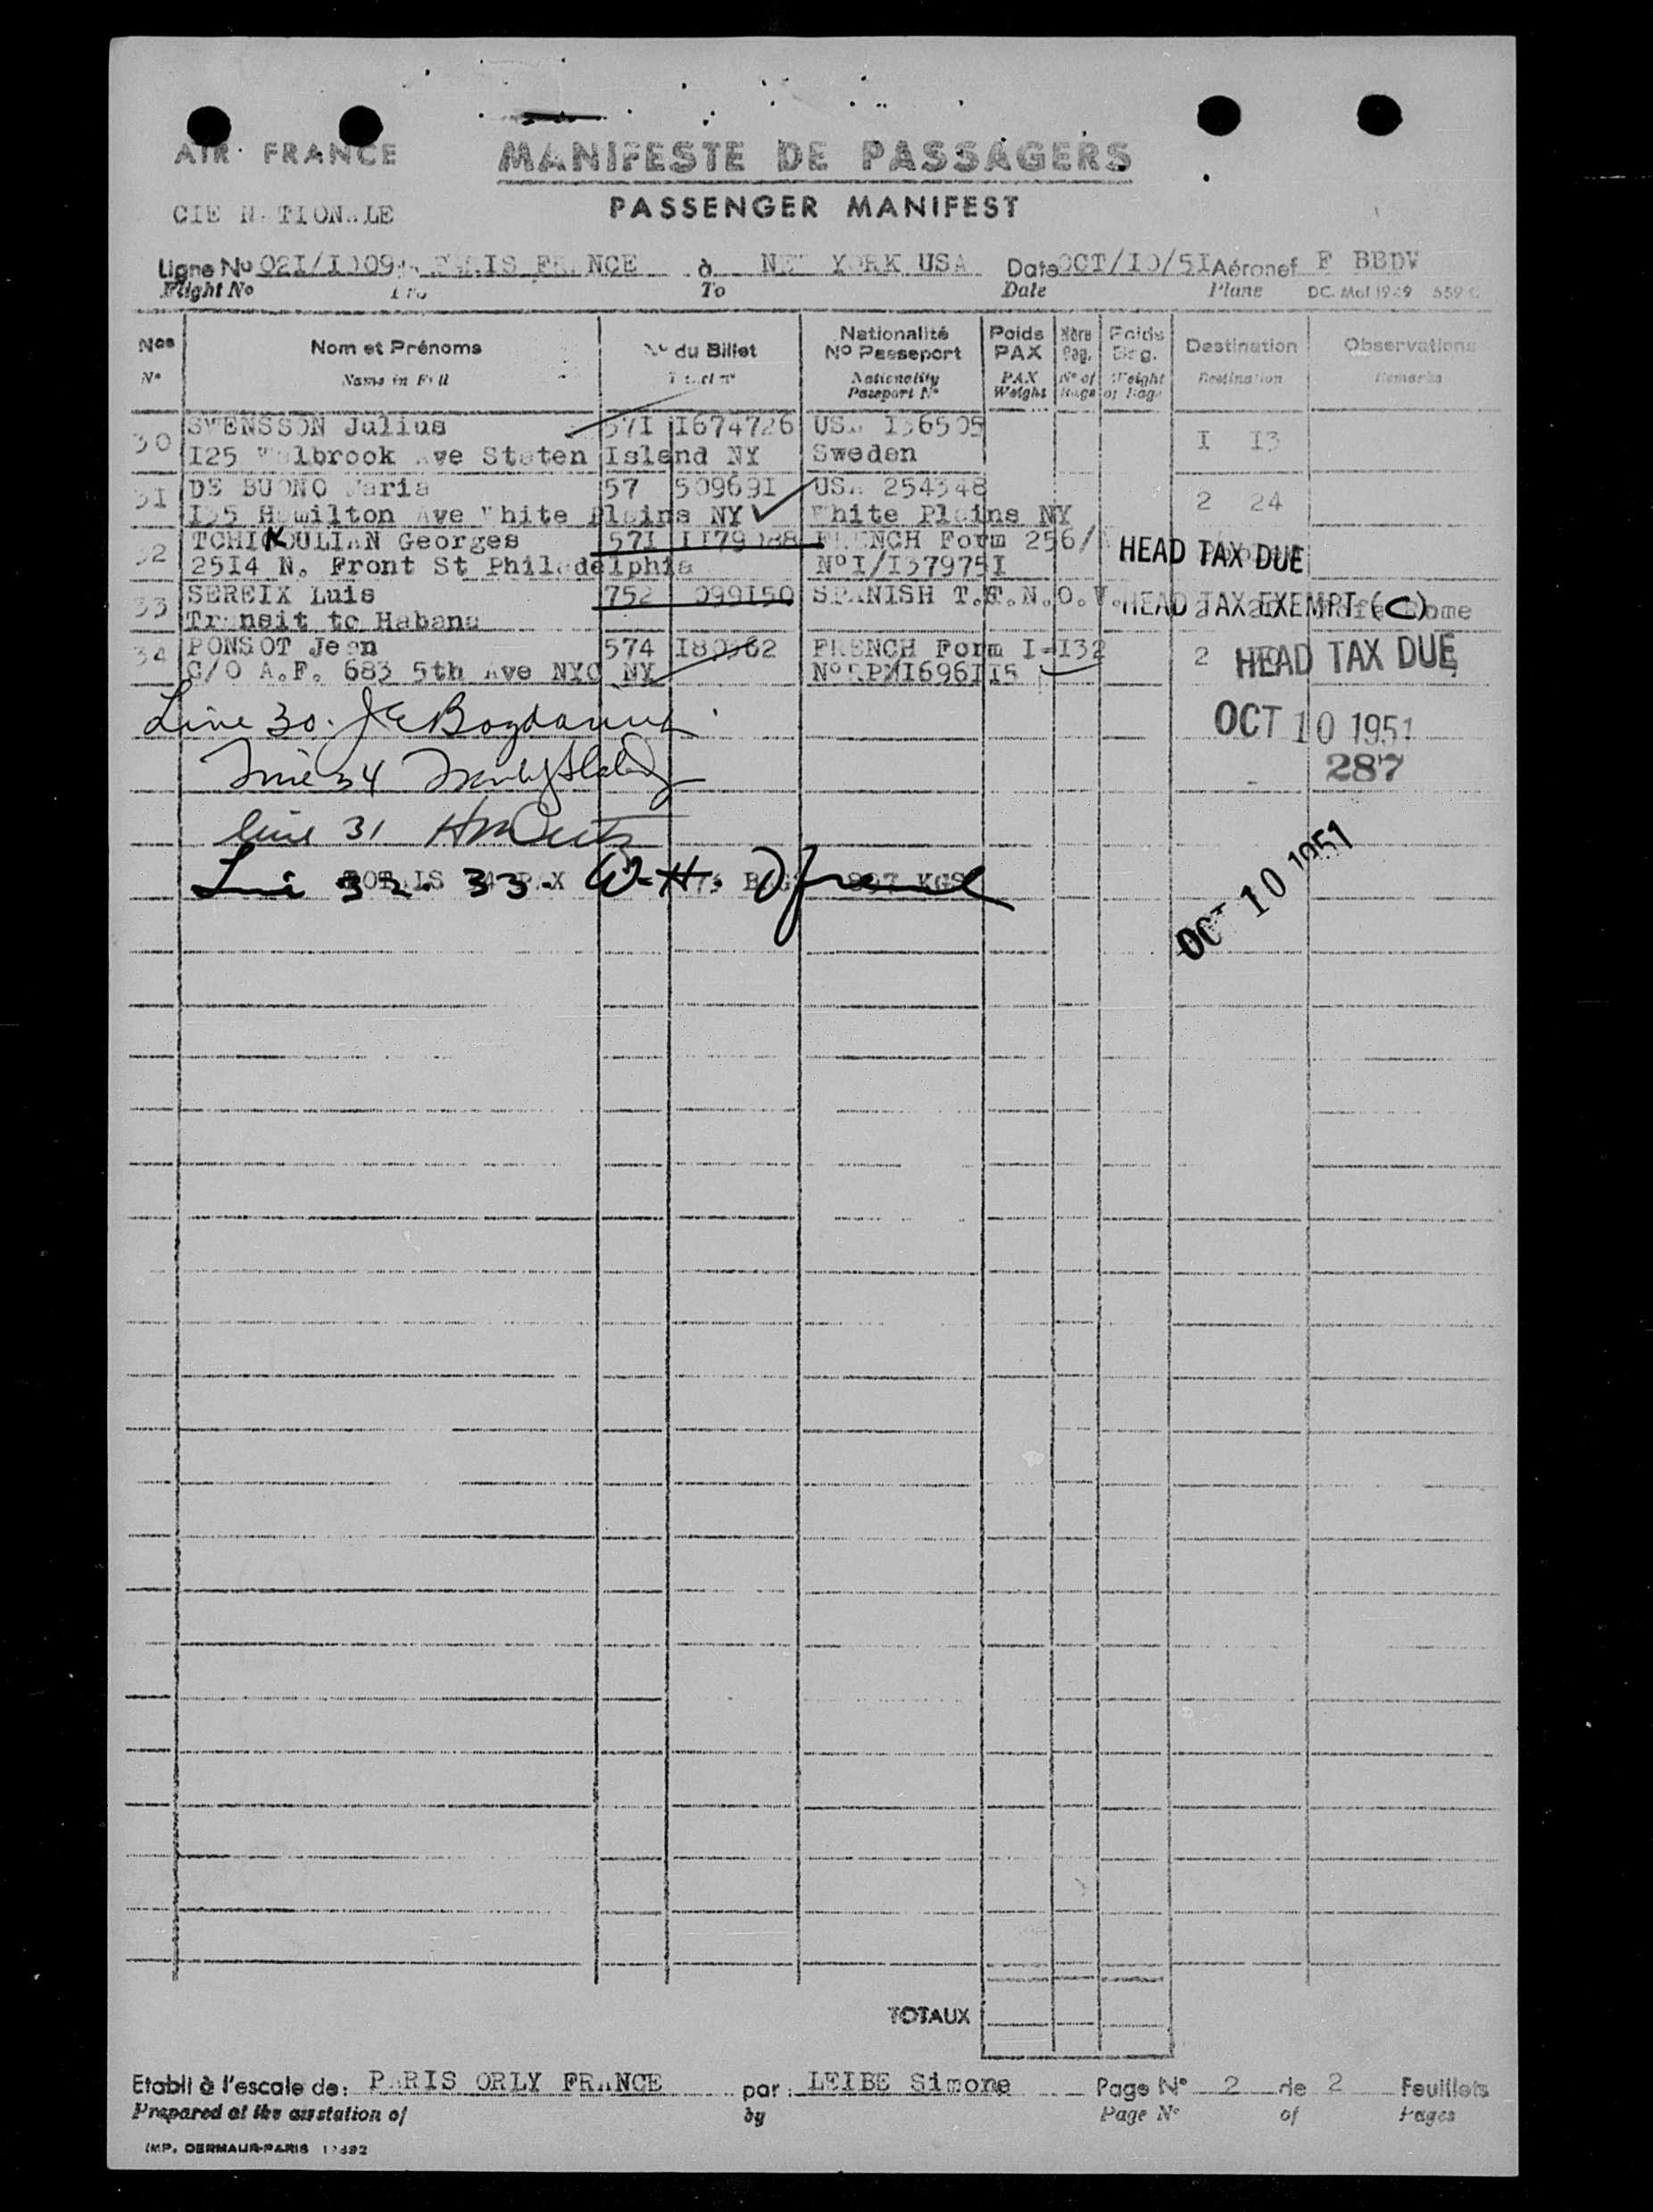 AIR FRANCE
MANIFESTE DE PASSAGERS
CIE N TION LE
PASSENGER MANIFEST
Ligne No 02I/I009 à NEW YORK USA Date OCT/I0/5I Aéronef F BBDV
Flight No To Date Plane DC. Mai 1949
Nos Nom et Prénoms No du Billet Nationalité No Passeport Poids PAX Nbre Bag. Poids Bag. Destination Observations
No Name in Full Ticket No Nationality Passport No PAX Weight No of Bags Weight of Bags Destination Remarks
30 SWENSSON Julius 57I I674726 USA I36505
I25 Walbrook Ave Staten Island NY Sweden I I3
3I DE BUONO Maria 57 50969I USA 254348
Hamilton Ave White Plains NY White Plains NY 2 24
32 TCHIKOULIAN Georges 57I II79088 FRENCH Form 256/
25I4 N. Front St Philadelphia NoI/I37975I HEAD TAX DUE
33 SEREIX Luis 752 099I50 SPANISH T. .N.O.V. HEAD TAX EXEMPT (C)
Transit to Habana
34 PONSOT Jean 574 I80362 FRENCH Form I-I32
C/O A.F. 683 5th Ave NYC NY No I696II5 2 HEAD TAX DUE
Line 30.
OCT 10 1951
Line 34
287
line 31
Line 32. 33. W. H.
KGS
OCT 10 1951
TOTAUX
Etabli à l'escale de: PARIS ORLY FRANCE par: LEIBE Simone Page No 2 de 2 Feuillets
Prepared at the airstation of by Page No of Pages
IMP. DERMAUR-PARIS